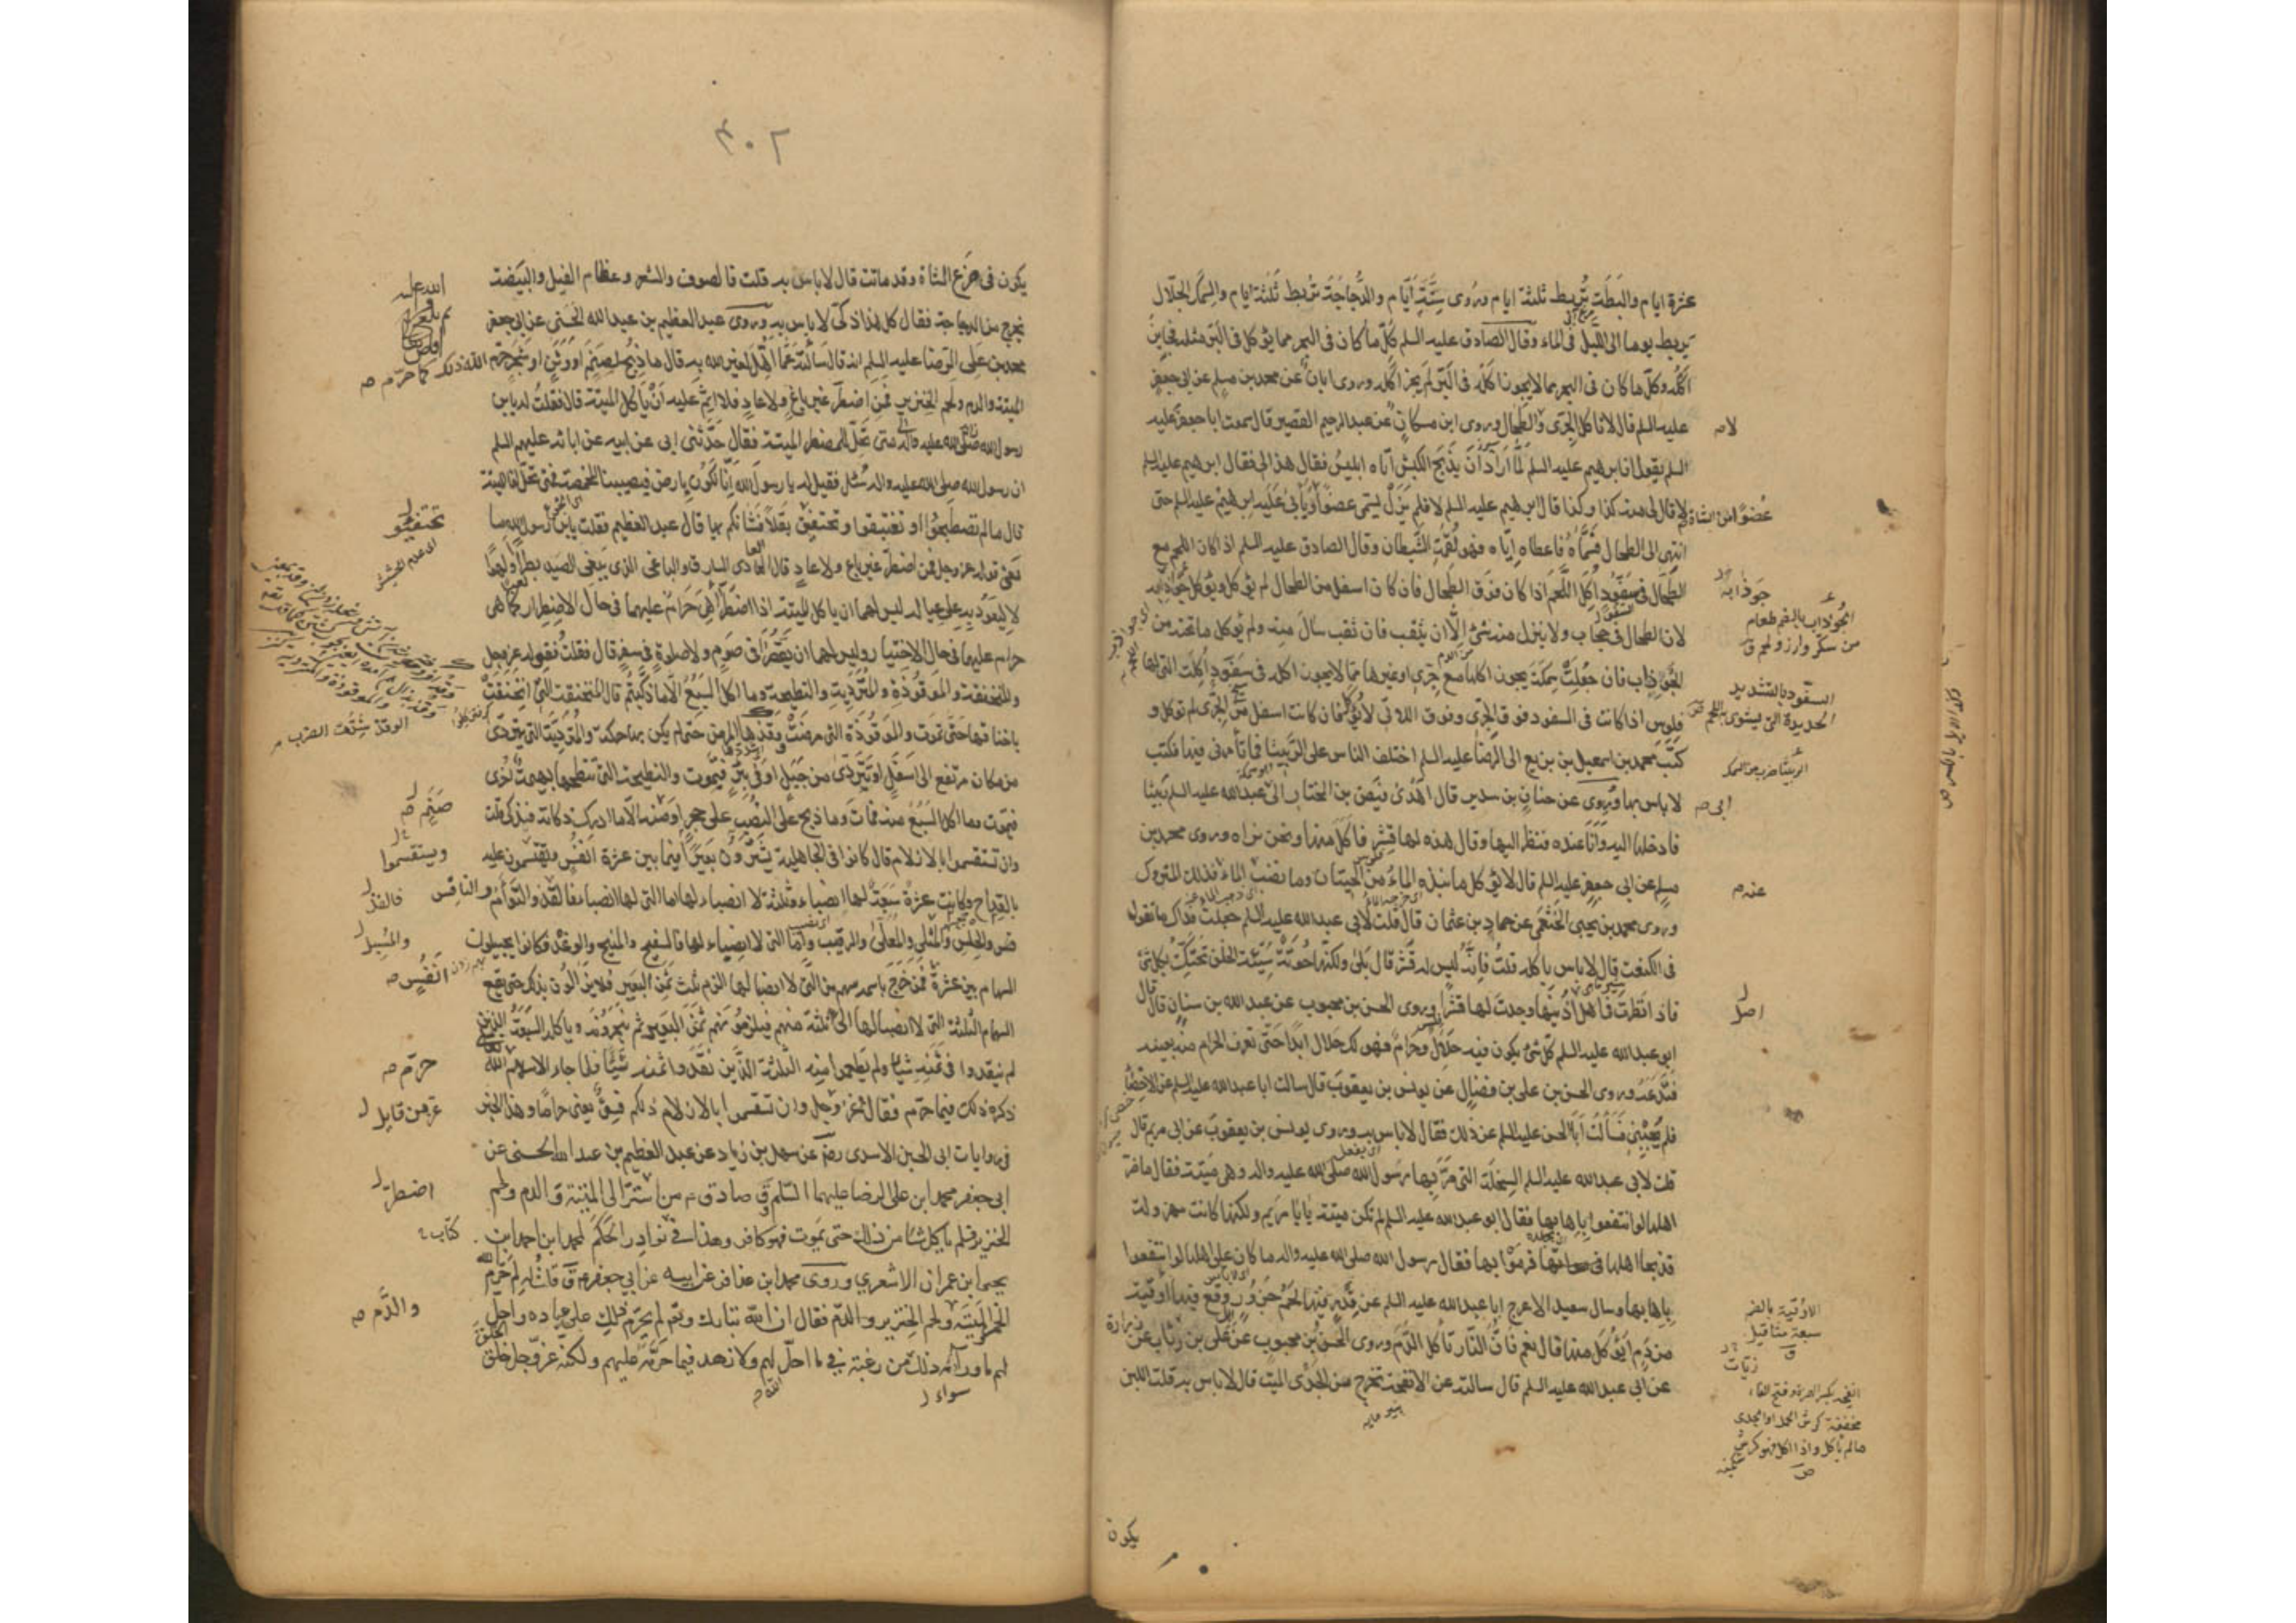 عشرة ايام والبطة تربط ثلثة ايام وروى ستة ايام والدجاجة تربط ثلثة ايام والسمك الجلال
يربط يوما الى الليل فى الماء وقال الصادق عليه السلم كل ما كان فى البحر مما يؤكل فى البر مثله فجايز
اكله وكل ما كان فى البحر مما لا يجوز اكله فى البر لم يجز اكله وروى ابان عن محمد بن مسلم عن ابى جعفر
عليه السلم قال لا تاكل الجرى والطحال وروى ابن مسكان عن عبد الرحيم القصير قال سمعت ابا جعفر عليه
السلم يقول ان ابرهيم عليه السلم لما اراد ان يذبح الكبش اتاه ابليس فقال هذا لى فقال ابرهيم عليه السلم
لا قال لى منه كذا وكذا قال ابرهيم عليه السلم لا فلم يزل يسمى عضوا ويابى عليه ابرهيم عليه السلم حتى
انتهى الى الطحال فسماه فاعطاه اياه فهو لقمة الشيطان وقال الصادق عليه السلم اذا كان اللحم مع
الطحال فى سفود اكل اللحم اذا كان فوق الطحال فان كان اسفل من الطحال لم يؤكل ويؤكل جوذابه
لان الطحال فى حجاب ولا ينزل منه شئ الا ان يثقب فان ثقب سال منه ولم يؤكل ما تحته من
الجوذاب فان جعلت سمكة يجوز اكلها مع جرى او غيرها مما لا يجوز اكله فى سفود اكلت التى لها
فلوس اذا كانت فى السفود فوق الجرى وفوق اللاتى لا تؤكل فان كانت اسفل من الجرى لم توكل و
كتب محمد بن اسمعيل بن بزيع الى الرضا عليه السلم اختلف الناس على الربيثا فما تأمرنى فيها فكتب
لا باس بها وروى عن حنان بن سدير قال اهدى فيض بن المختار الى ابى عبد الله عليه السلم ربيثا
فادخلها اليه وانا عنده فنظر اليها وقال هذه لها قشر فاكل منها ونحن نراه وروى محمد بن
مسلم عن ابى جعفر عليه السلم قال لا يؤكل ما نبذه الماء من الحيتان وما نضب الماء فذلك المتروك
وروى محمد بن يحيى الخثعمى عن حماد بن عثمان قال قلت لابى عبد الله عليه السلم جعلت فداك ما تقول
فى الكنعت قال لا باس باكله قلت فانه ليس له قشر قال بلى ولكنها حوتة سيئة الخلق تحتك بكل شئ
فاذا نظرت فى اصل اذنيها وجدت لها قشرا وروى الحسن بن محبوب عن عبد الله بن سنان قال قال
ابو عبد الله عليه السلم كل شئ يكون فيه حلال وحرام فهو لك حلال ابدا حتى تعرف الحرام منه بعينه
فتدعه وروى الحسن بن على بن فضال عن يونس بن يعقوب قال سالت ابا عبد الله عليه السلم عن الاخصاء
فلم يجبنى فسألت ابا الحسن عليه السلم عن ذلك فقال لا باس به وروى يونس بن يعقوب عن ابى مريم قال
قلت لابى عبد الله عليه السلم السخلة التى مر بها رسول الله صلى الله عليه واله وهى ميتة فقال ما ضر
اهلها لو انتفعوا باهابها فقال ابو عبد الله عليه السلم لم تكن ميتة يا با مريم ولكنها كانت مهزولة
فذبحها اهلها فرموا بها فقال رسول الله صلى الله عليه واله ما كان على اهلها لو انتفعوا
باهابها وسال سعيد الاعرج ابا عبد الله عليه السلم عن قدر فيها لحم جزور وقع فيها اوقية
من دم ايؤكل منها قال نعم فان النار تاكل الدم وروى الحسن بن محبوب عن على بن رئاب عن زرارة
عن ابى عبد الله عليه السلم قال سالته عن الانفحة تخرج من الجدى الميت قال لا باس به قلت اللبن
يكون
لا صه
عضوا من الشاة
جوذابه
الجوذاب بالضم طعام
من سكر وارز ولحم ق
السفود بالتشديد
الحديدة التى يشوى بها اللحم
الربيثا ضرب من السمك
ابى صه
عنه م
اصل
الاوقية بالضم
سبعة مثاقيل
ق
زيات
انفحه بكسر الهمزة وفتح الفاء
مخففة كرش الحمل او الجدى
ما لم ياكل واذا اكل فهو كرش
ص
٣٠٢
يكون فى ضرع الشاة وقد ماتت قال لا باس به قلت فالصوف والشعر وعظام الفيل والبيضة
تخرج من الدجاجة فقال كل هذا ذكى لا باس به وروى عبد العظيم بن عبد الله الحسنى عن ابى جعفر
محمد بن على الرضا عليه السلم انه قال سألته عما اهل لغير الله به قال ما ذبح لصنم او وثن او شجر حرم الله ذلك كما حرم
الميتة والدم ولحم الخنزير فمن اضطر غير باغ ولا عاد فلا اثم عليه ان ياكل الميتة قال فقلت له يا بن
رسول الله صلى الله عليه واله متى تحل للمضطر الميتة فقال حدثنى ابى عن ابيه عن ابائه عليهم السلم
ان رسول الله صلى الله عليه واله سئل فقيل له يا رسول الله انا نكون بارض فيصيبنا المخمصة فمتى تحل لنا الميتة
قال ما لم تصطبحوا او تغتبقوا او تحتفوا بقلا فشانكم بها قال عبد العظيم فقلت يا بن رسول الله ما
معنى قوله عز وجل فمن اضطر غير باغ ولا عاد قال العادى السارق والباغى الذى يبغى الصيد بطرا او لهوا
لا ليعود به على عياله ليس لهما ان ياكلا الميتة اذا اضطرا هى حرام عليهما فى حال الاضطرار كما هى
حرام عليهما فى حال الاختيار وليس لهما ان يقصرا فى صوم ولا صلوة فى سفر قال فقلت فقوله عز وجل
والمنخنقة والموقوذة والمتردية والنطيحة وما اكل السبع الا ما ذكيتم قال المنخنقة التى انخنقت
باخناقها حتى تموت والموقوذة التى مرضت وقذها المرض حتى لم يكن بها حركة والمتردية التى تتردى
من مكان مرتفع الى اسفل او تتردى من جبل او فى بئر فتموت والنطيحة التى تنطحها بهيمة اخرى
فتموت وما اكل السبع منه فمات وما ذبح على النصب على حجر او صنم الا ما ادرك ذكاته فيذكى قلت
وان تستقسموا بالازلام قال كانوا فى الجاهلية يشترون بعيرا فيما بين عشرة انفس ويقتسمون عليه
بالقداح وكانت عشرة سبعة لها انصباء وثلثة لا انصباء لها اما التى لها انصباء فالفذ والتوأم والنافس
والحلس والمعلى والرقيب واما التى لا انصباء لها فالسفيح والمنيح والوغد فكانوا يجيلون
السهام بين عشرة فمن خرج باسمه سهم من التى لا انصبا لها الزم ثلث ثمن البعير فلا يزالون بذلك حتى تقع
السهام الثلثة التى لا انصبا لها الى ثلثة منهم فيلزمونهم ثمن البعير ثم ينحرونه وياكله السبعة الذين
لم ينقدوا فى ثمنه شيئا ولم يطعموا منه الثلثة الذين نقدوا ثمنه شيئا فلما جاء الاسلام حرم الله تعالى
ذكره ذلك فيما حرم فقال عز وجل وان تستقسموا بالازلام ذلكم فسق يعنى حراما وهذا الخبر
فى روايات ابى الحسين الاسدى رضه عن سهل بن زياد عن عبد العظيم بن عبد الله الحسنى عن
ابى جعفر محمد ابن على الرضا عليهما السلم ق صادق م من اضطر الى الميتة والدم ولحم
الخنزير فلم ياكل شيئا من ذلك حتى يموت فهو كافر وهذا فى نوادر الحكمة لمحمد ابن احمد ابن
يحيى ابن عمران الاشعري وروى محمد ابن عذافر عن ابيه عن ابي جعفر م ق قلت له لم حرم الله
الخمر والميتة ولحم الخنزير والدم فقال ان الله تبارك وتعالى لم يحرم ذلك على عباده واحل
لهم ما وراء ذلك من رغبة فيما احل لهم ولا زهد فيما حرمه عليهم ولكنه عز وجل خلق الخلق
سواء
تحتفوا
الوقذ شدت الضرب
صنم
ويستقسموا
فالفذ
والمسبل
انفس صه
حرم صه
عز من قايل
اضطر
كتاب
والدم صه